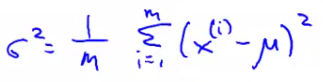 σ² = 1/m Σᵢ₌₁ᵐ (x⁽ⁱ⁾ - μ)²